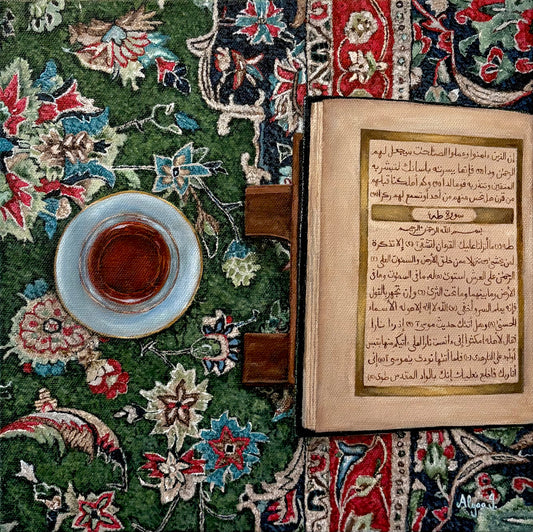 إن الذين ءامنوا وعملوا الصلحت سيجعل لهم
الرحمن ودا (٩٦) فإنما يسرنه بلسانك لتبشر به
المتقين وتنذر به قوما لدا (٩٧) وكم أهلكنا قبلهم
من قرن هل تحس منهم من أحد أو تسمع لهم ركزا (٩٨)
سورة طه
بسم الله الرحمن الرحيم
طه (١) ما أنزلنا عليك القرءان لتشقى (٢) إلا تذكرة
لمن يخشى (٣) تنزيلا ممن خلق الأرض والسموت العلى (٤)
الرحمن على العرش استوى (٥) له ما في السموت وما في
الأرض وما بينهما وما تحت الثرى (٦) وإن تجهر بالقول
فإنه يعلم السر وأخفى (٧) الله لا إله إلا هو له الأسماء
الحسنى (٨) وهل أتىك حديث موسى (٩) إذ رءا نارا
فقال لأهله امكثوا إني ءانست نارا لعلي ءاتيكم منها بقبس
أو أجد على النار هدى (١٠) فلما أتىها نودي يموسى (١١) إني
أنا ربك فاخلع نعليك إنك بالواد المقدس طوى (١٢)